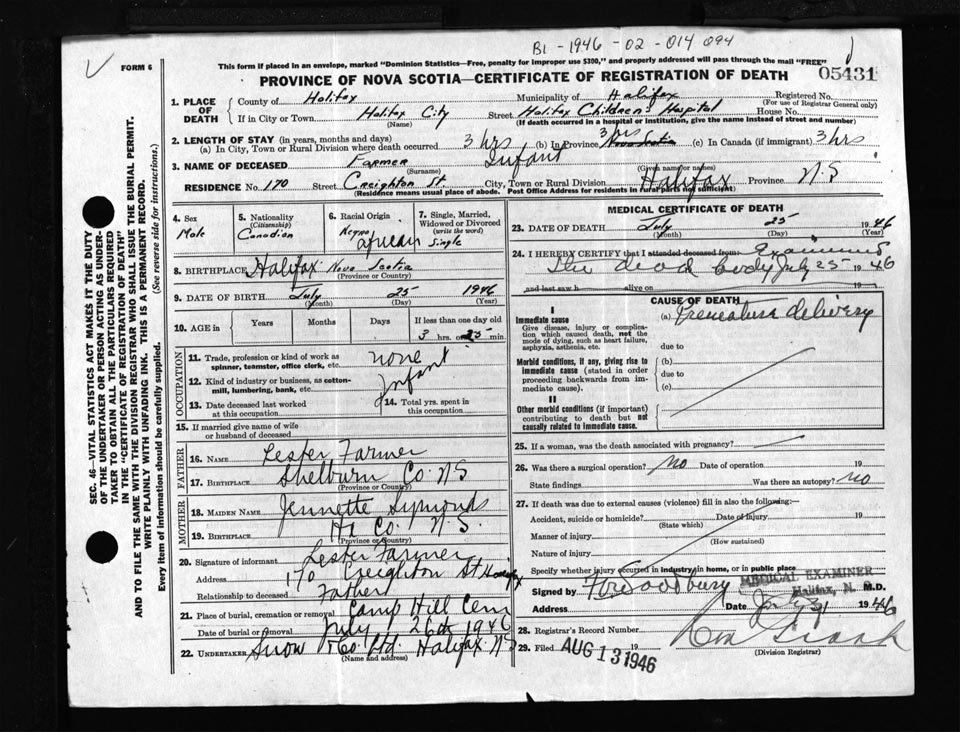 B1 - 1946 - 02 - 014 094
FORM 6
This form if placed in an envelope, marked "Dominion Statistics—Free, penalty for improper use $300," and properly addressed will pass through the mail "FREE"
05431
PROVINCE OF NOVA SCOTIA—CERTIFICATE OF REGISTRATION OF DEATH
SEC. 46—VITAL STATISTICS ACT MAKES IT THE DUTY
OF THE UNDERTAKER OR PERSON ACTING AS UNDER-
TAKER TO OBTAIN ALL THE PARTICULARS REQUIRED
IN THE "CERTIFICATE OF REGISTRATION OF DEATH"
AND TO FILE THE SAME WITH THE DIVISION REGISTRAR WHO SHALL ISSUE THE BURIAL PERMIT.
WRITE PLAINLY WITH UNFADING INK. THIS IS A PERMANENT RECORD.
Every item of information should be carefully supplied. (See reverse side for instructions.)
1. PLACE OF DEATH County of Halifax Municipality of Halifax Registered No.
(For use of Registrar General only)
If in City or Town Halifax City Street Halifax Children's Hospital House No.
(Name) (If death occurred in a hospital or institution, give the name instead of street and number)
2. LENGTH OF STAY (in years, months and days)
(a) In City, Town or Rural Division where death occurred 3 hrs (b) In Province 3 hrs Nova Scotia (c) In Canada (if immigrant) 3 hrs
3. NAME OF DECEASED Farmer Infant
(Surname) (Given name or names)
RESIDENCE No. 170 Street Creighton St. City, Town or Rural Division Halifax Province N.S
(Residence means place of abode. Post Office Address for residents in rural parts not sufficient)
4. Sex Male
5. Nationality (Citizenship) Canadian
6. Racial Origin Negro African
7. Single, Married, Widowed or Divorced (write the word) Single
8. BIRTHPLACE Halifax Nova Scotia
(Province or Country)
9. DATE OF BIRTH July 25 1946
(Month) (Day) (Year)
10. AGE in Years Months Days If less than one day old
3 hrs. or 25 min.
OCCUPATION
11. Trade, profession or kind of work as spinner, teamster, office clerk, etc. none
12. Kind of industry or business, as cotton-mill, lumbering, bank, etc. Infant
13. Date deceased last worked at this occupation
14. Total yrs. spent in this occupation
15. If married give name of wife or husband of deceased
FATHER
16. NAME Lester Farmer
17. BIRTHPLACE Shelburn Co. N S
(Province or Country)
MOTHER
18. MAIDEN NAME Jennette Symonds
19. BIRTHPLACE Hx Co. N. S.
(Province or Country)
20. Signature of informant Lester Farmer
Address 170 Creighton St Halifax
Relationship to deceased Father
21. Place of burial, cremation or removal Camp Hill Cem
Date of burial or removal July 26th 1946
22. UNDERTAKER Snow & Co. Ltd. Halifax N S
(Name and address)
MEDICAL CERTIFICATE OF DEATH
23. DATE OF DEATH July 25 1946
(Month) (Day)
24. I HEREBY CERTIFY that I attended deceased from Examined
the dead body July 25 1946
and last saw h alive on 19
CAUSE OF DEATH
I
Immediate cause (a) Premature delivery
Give disease, injury or complication which caused death, not the mode of dying, such as heart failure, asphyxia, asthenia, etc. due to
Morbid conditions, if any, giving rise to immediate cause (stated in order proceeding backwards from immediate cause). (b)
due to
(c)
II
Other morbid conditions (if important) contributing to death but not causally related to immediate cause.
25. If a woman, was the death associated with pregnancy?
26. Was there a surgical operation? No Date of operation 19
State findings Was there an autopsy? No
27. If death was due to external causes (violence) fill in also the following:—
Accident, suicide or homicide? Date of injury 19
(State which)
Manner of injury
(How sustained)
Nature of injury
Specify whether injury occurred in industry in home, or in public place
Signed by Woodbury M.D.
MEDICAL EXAMINER
Halifax, N.
Address Date July 31 1946
28. Registrar's Record Number
29. Filed AUG 13 1946
(Division Registrar)